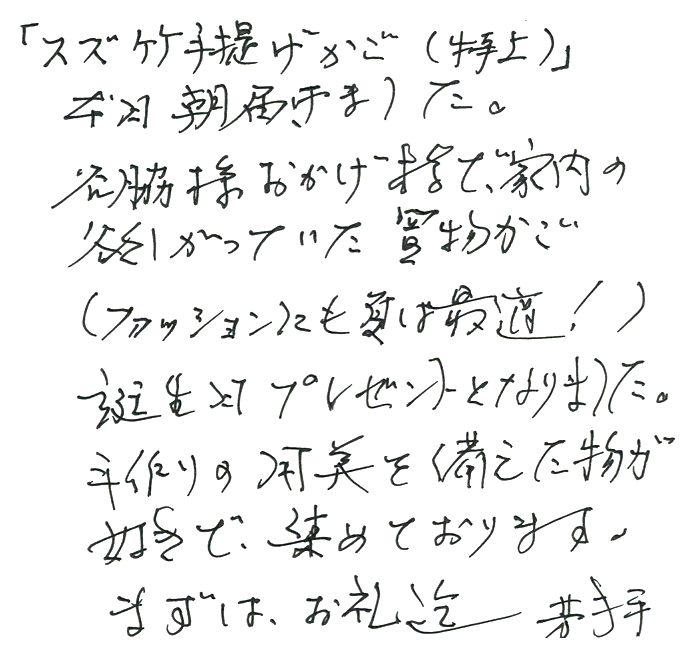 「スズ竹手提げかご(特上)」
本日朝届きました。
谷脇様おかげ様で、家内の
欲しがっていた買物かご
(ファッションにも夏は最適!)
誕生日プレゼントとなりました。
手作りの用美を備えた物が
好きで、集めております。
まずは、お礼迄